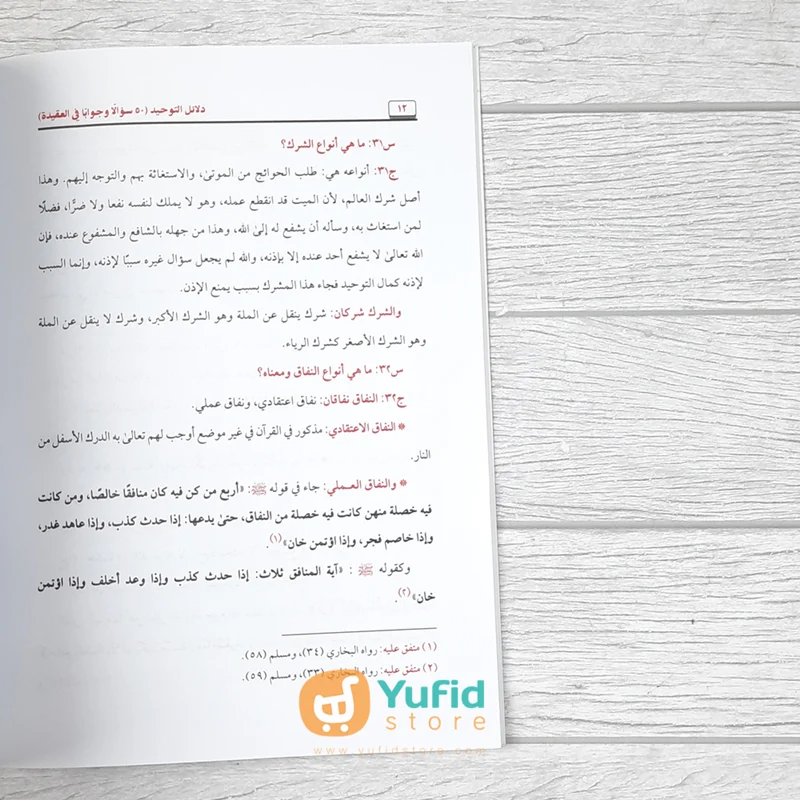 ١٢
دلائل التوحيد (٥٠ سؤالًا وجوابًا في العقيدة)
س٣١: ما هي أنواع الشرك؟
ج٣١: أنواعه هي: طلب الحوائج من الموتى، والاستغاثة بهم والتوجه إليهم. وهذا
أصل شرك العالم، لأن الميت قد انقطع عمله، وهو لا يملك لنفسه نفعا ولا ضرًّا، فضلًا
لمن استغاث به، وسأله أن يشفع له إلى الله، وهذا من جهله بالشافع والمشفوع عنده، فإن
الله تعالى لا يشفع أحد عنده إلا بإذنه، والله لم يجعل سؤال غيره سببًا لإذنه، وإنما السبب
لإذنه كمال التوحيد فجاء هذا المشرك بسبب يمنع الإذن.
والشرك شركان: شرك ينقل عن الملة وهو الشرك الأكبر، وشرك لا ينقل عن الملة
وهو الشرك الأصغر كشرك الرياء.
س٣٢: ما هي أنواع النفاق ومعناه؟
ج٣٢: النفاق نفاقان: نفاق اعتقادي، ونفاق عملي.
* النفاق الاعتقادي: مذكور في القرآن في غير موضع أوجب لهم تعالى به الدرك الأسفل من
النار.
* والنفاق العملي: جاء في قوله ﷺ: «أربع من كن فيه كان منافقًا خالصًا، ومن كانت
فيه خصلة منهن كانت فيه خصلة من النفاق، حتى يدعها: إذا حدث كذب، وإذا عاهد غدر،
وإذا خاصم فجر، وإذا اؤتمن خان»(١).
وكقوله ﷺ : «آية المنافق ثلاث: إذا حدث كذب وإذا وعد أخلف وإذا اؤتمن
خان»(٢).
(١) متفق عليه: رواه البخاري (٣٤)، ومسلم (٥٨).
(٢) متفق عليه: رواه البخاري (٣٣)، ومسلم (٥٩).
Yufid
store
www.yufidstore.com